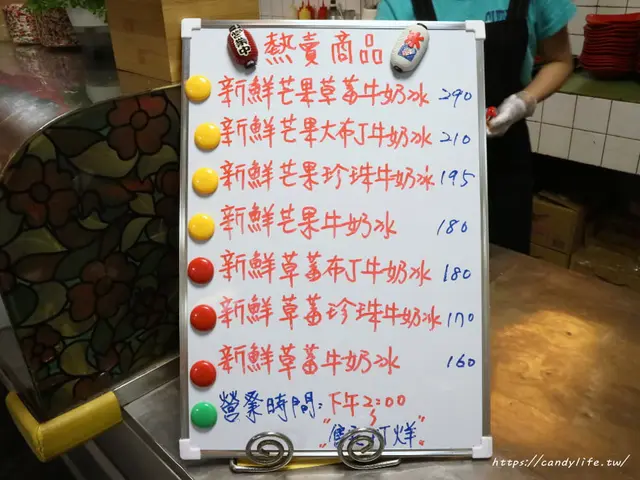 熱賣商品
新鮮芒果草莓牛奶冰 290
新鮮芒果大布丁牛奶冰 210
新鮮芒果珍珠牛奶冰 195
新鮮芒果牛奶冰 180
新鮮草莓布丁牛奶冰 180
新鮮草莓珍珠牛奶冰 170
新鮮草莓牛奶冰 160
營業時間：下午2:00
打烊"
https://candylife.tw/